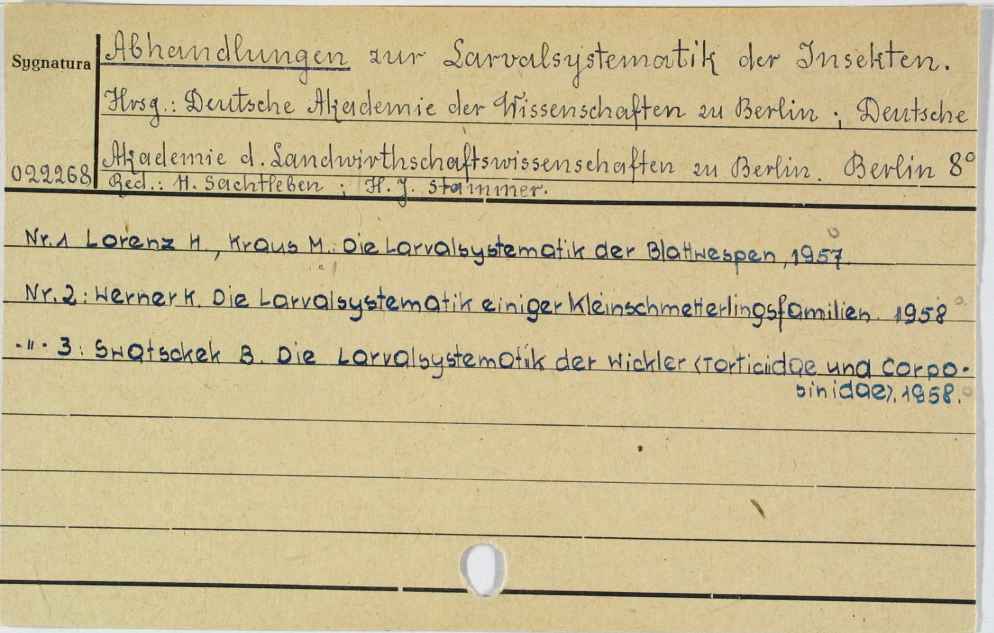 Abhandlungen zur Larvalsystematik der Insekten.
Sygnatura
Hrsg.: Deutsche Akademie der Wissenschaften zu Berlin ; Deutsche
Akademie d. Landwirthschaftswissenschaften zu Berlin. Berlin 8°
022268
Red.: H. Sachtleben ; H. J. Stammer.
Nr.1 Lorenz H., Kraus M.: Die Larvalsystematik der Blattwespen, 1957.
Nr.2: Werner K. Die Larvalsystematik einiger Kleinschmetterlingsfamilien. 1958
-"- 3: Swatschek B. Die Larvalsystematik der Wickler (Torticiidae und Carpo-
sinidae). 1958.